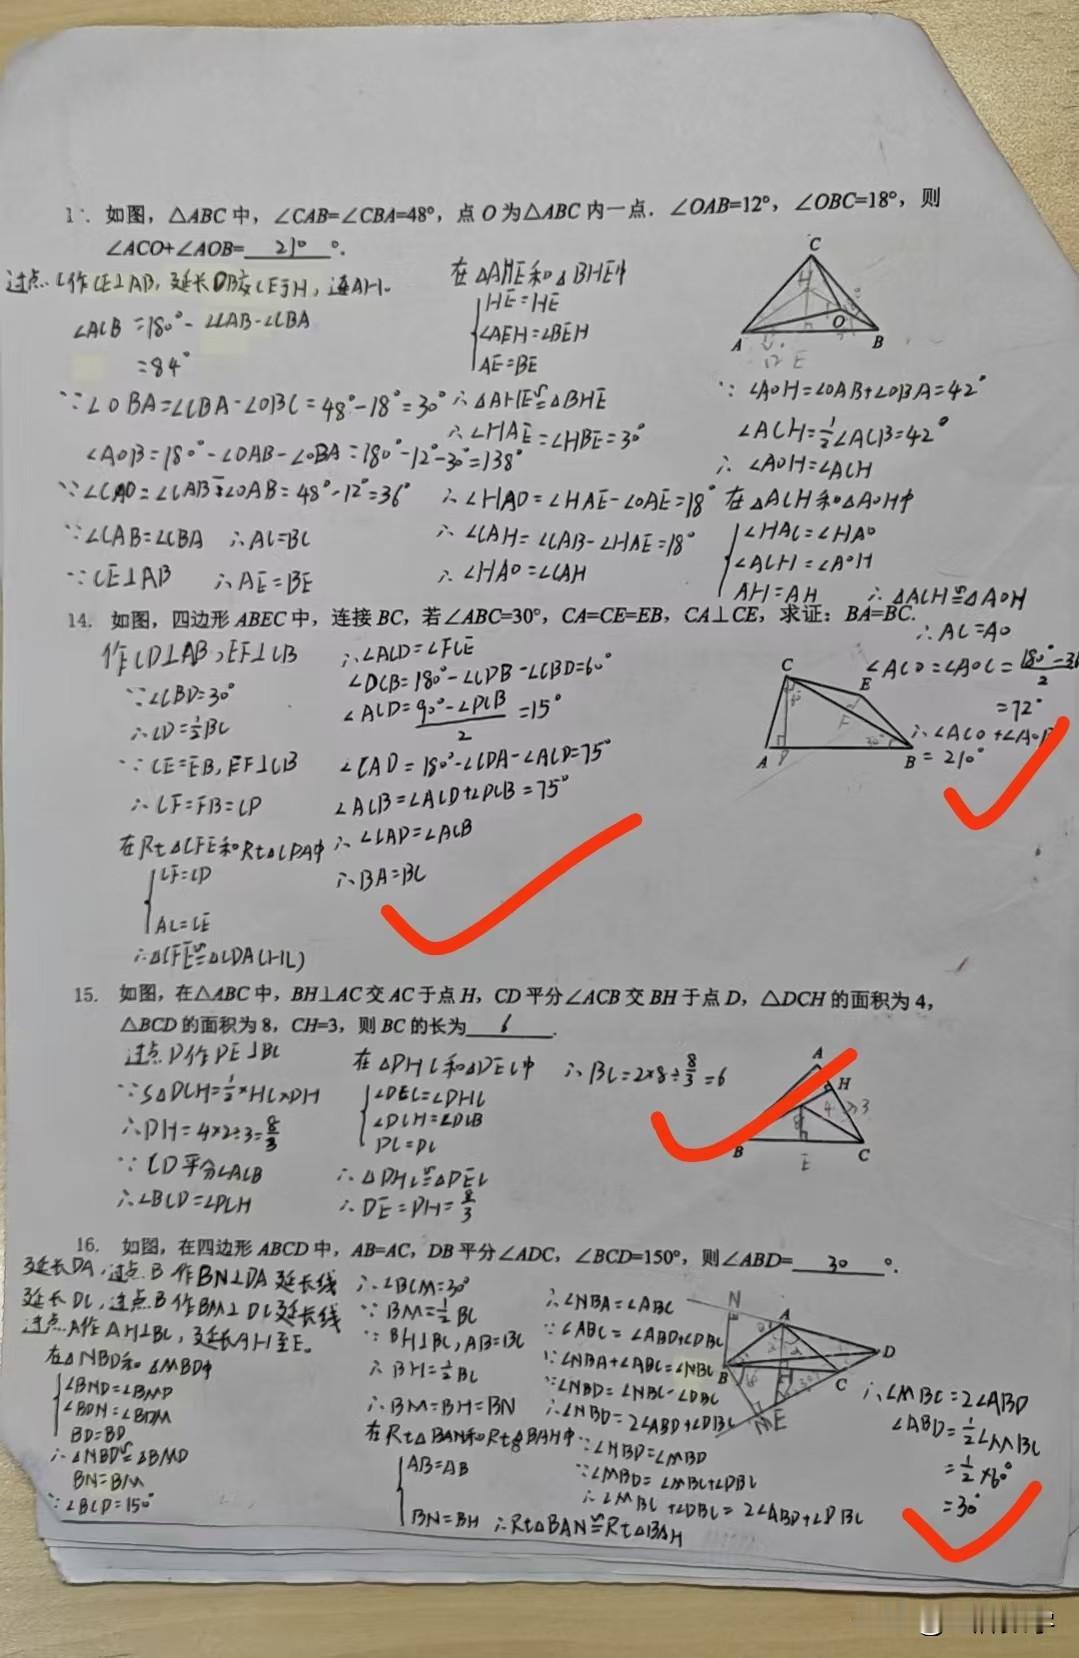 1. 如图，△ABC中，∠CAB=∠CBA=48°，点O为△ABC内一点．∠OAB=12°，∠OBC=18°，则
∠ACO+∠AOB= 210 °．
过点C作CE⊥AB，延长OB交CE于H，连AH．
∠ACB=180°-∠CAB-∠CBA
=84°
∵∠OBA=∠CBA-∠OBC=48°-18°=30°
∠AOB=180°-∠OAB-∠OBA=180°-12°-30°=138°
∵∠CAO=∠CAB-∠OAB=48°-12°=36°
∵∠CAB=∠CBA ∴AC=BC
∵CE⊥AB ∴AE=BE
在△AHE和△BHE中
HE=HE
∠AEH=∠BEH
AE=BE
∴△AHE≌△BHE
∴∠HAE=∠HBE=30°
∴∠HAO=∠HAE-∠OAE=18°
∴∠CAH=∠CAB-∠HAE=18°
∴∠HAO=∠CAH
C
H
O
A
B
12
E
∵∠AOH=∠OAB+∠OBA=42°
∠ACH=½∠ACB=42°
∴∠AOH=∠ACH
在△ACH和△AOH中
∠HAC=∠HAO
∠ACH=∠AOH
AH=AH ∴△ACH≌△AOH
∴AC=AO
∠ACO=∠AOC=(180°-36)/2
=72°
∴∠ACO+∠AOB
=210°
14. 如图，四边形ABEC中，连接BC，若∠ABC=30°，CA=CE=EB，CA⊥CE，求证：BA=BC．
作CD⊥AB，EF⊥CB
∵∠CBD=30°
∴CD=½BC
∵CE=EB，EF⊥CB
∴CF=FB=CD
在Rt△CFE和Rt△CDA中
CF=CD
AC=CE
∴△CFE≌△CDA(HL)
∴∠ACD=∠FCE
∠DCB=180°-∠CDB-∠CBD=60°
∠ACD=(90°-∠DCB)/2=15°
∠CAD=180°-∠CDA-∠ACD=75°
∠ACB=∠ACD+∠DCB=75°
∴∠CAD=∠ACB
∴BA=BC
C
E
F
30°
A
D
B
15. 如图，在△ABC中，BH⊥AC交AC于点H，CD平分∠ACB交BH于点D，△DCH的面积为4，
△BCD的面积为8，CH=3，则BC的长为 6 ．
过点D作DE⊥BC
∵S△DCH=½×HC×DH
∴DH=4×2÷3=8/3
∵CD平分∠ACB
∴∠BCD=∠DCH
在△DHC和△DEC中
∠DEC=∠DHC
∠DCH=∠DCB
DC=DC
∴△DHC≌△DEC
∴DE=DH=8/3
∴BC=2×8÷8/3=6
A
H
4
3
8
B
E
C
16. 如图，在四边形ABCD中，AB=AC，DB平分∠ADC，∠BCD=150°，则∠ABD= 30 °．
延长DA，过点B作BN⊥DA延长线
延长DC，过点B作BM⊥DC延长线
过点A作AH⊥BC，延长AH至E。
在△NBD和△MBD中
∠BND=∠BMD
∠BDN=∠BDM
BD=BD
∴△NBD≌△BMD
BN=BM
∵∠BCD=150°
∴∠BCM=30°
∵BM=½BC
∵BH⊥BC，AB=BC
∴BH=½BC
∴BM=BH=BN
在Rt△BAN和Rt△BAH中
AB=AB
BN=BH ∴Rt△BAN≌Rt△BAH
∴∠NBA=∠ABC
∵∠ABC=∠ABD+∠DBC
∵∠NBA+∠ABC=∠NBC
∵∠NBD=∠NBC-∠DBC
∴∠NBD=2∠ABD+∠DBC
∵∠NBD=∠MBD
∵∠MBD=∠MBC+∠DBC
∴∠MBC+∠DBC=2∠ABD+∠DBC
N
A
D
B
H
C
M
E
∴∠MBC=2∠ABD
∠ABD=½∠MBC
=½×60°
=30°